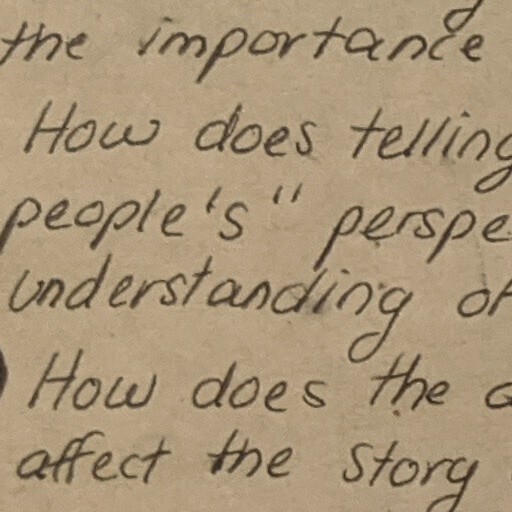 the importance
How does telling
people's" perspe
understanding of
How does the
affect the story